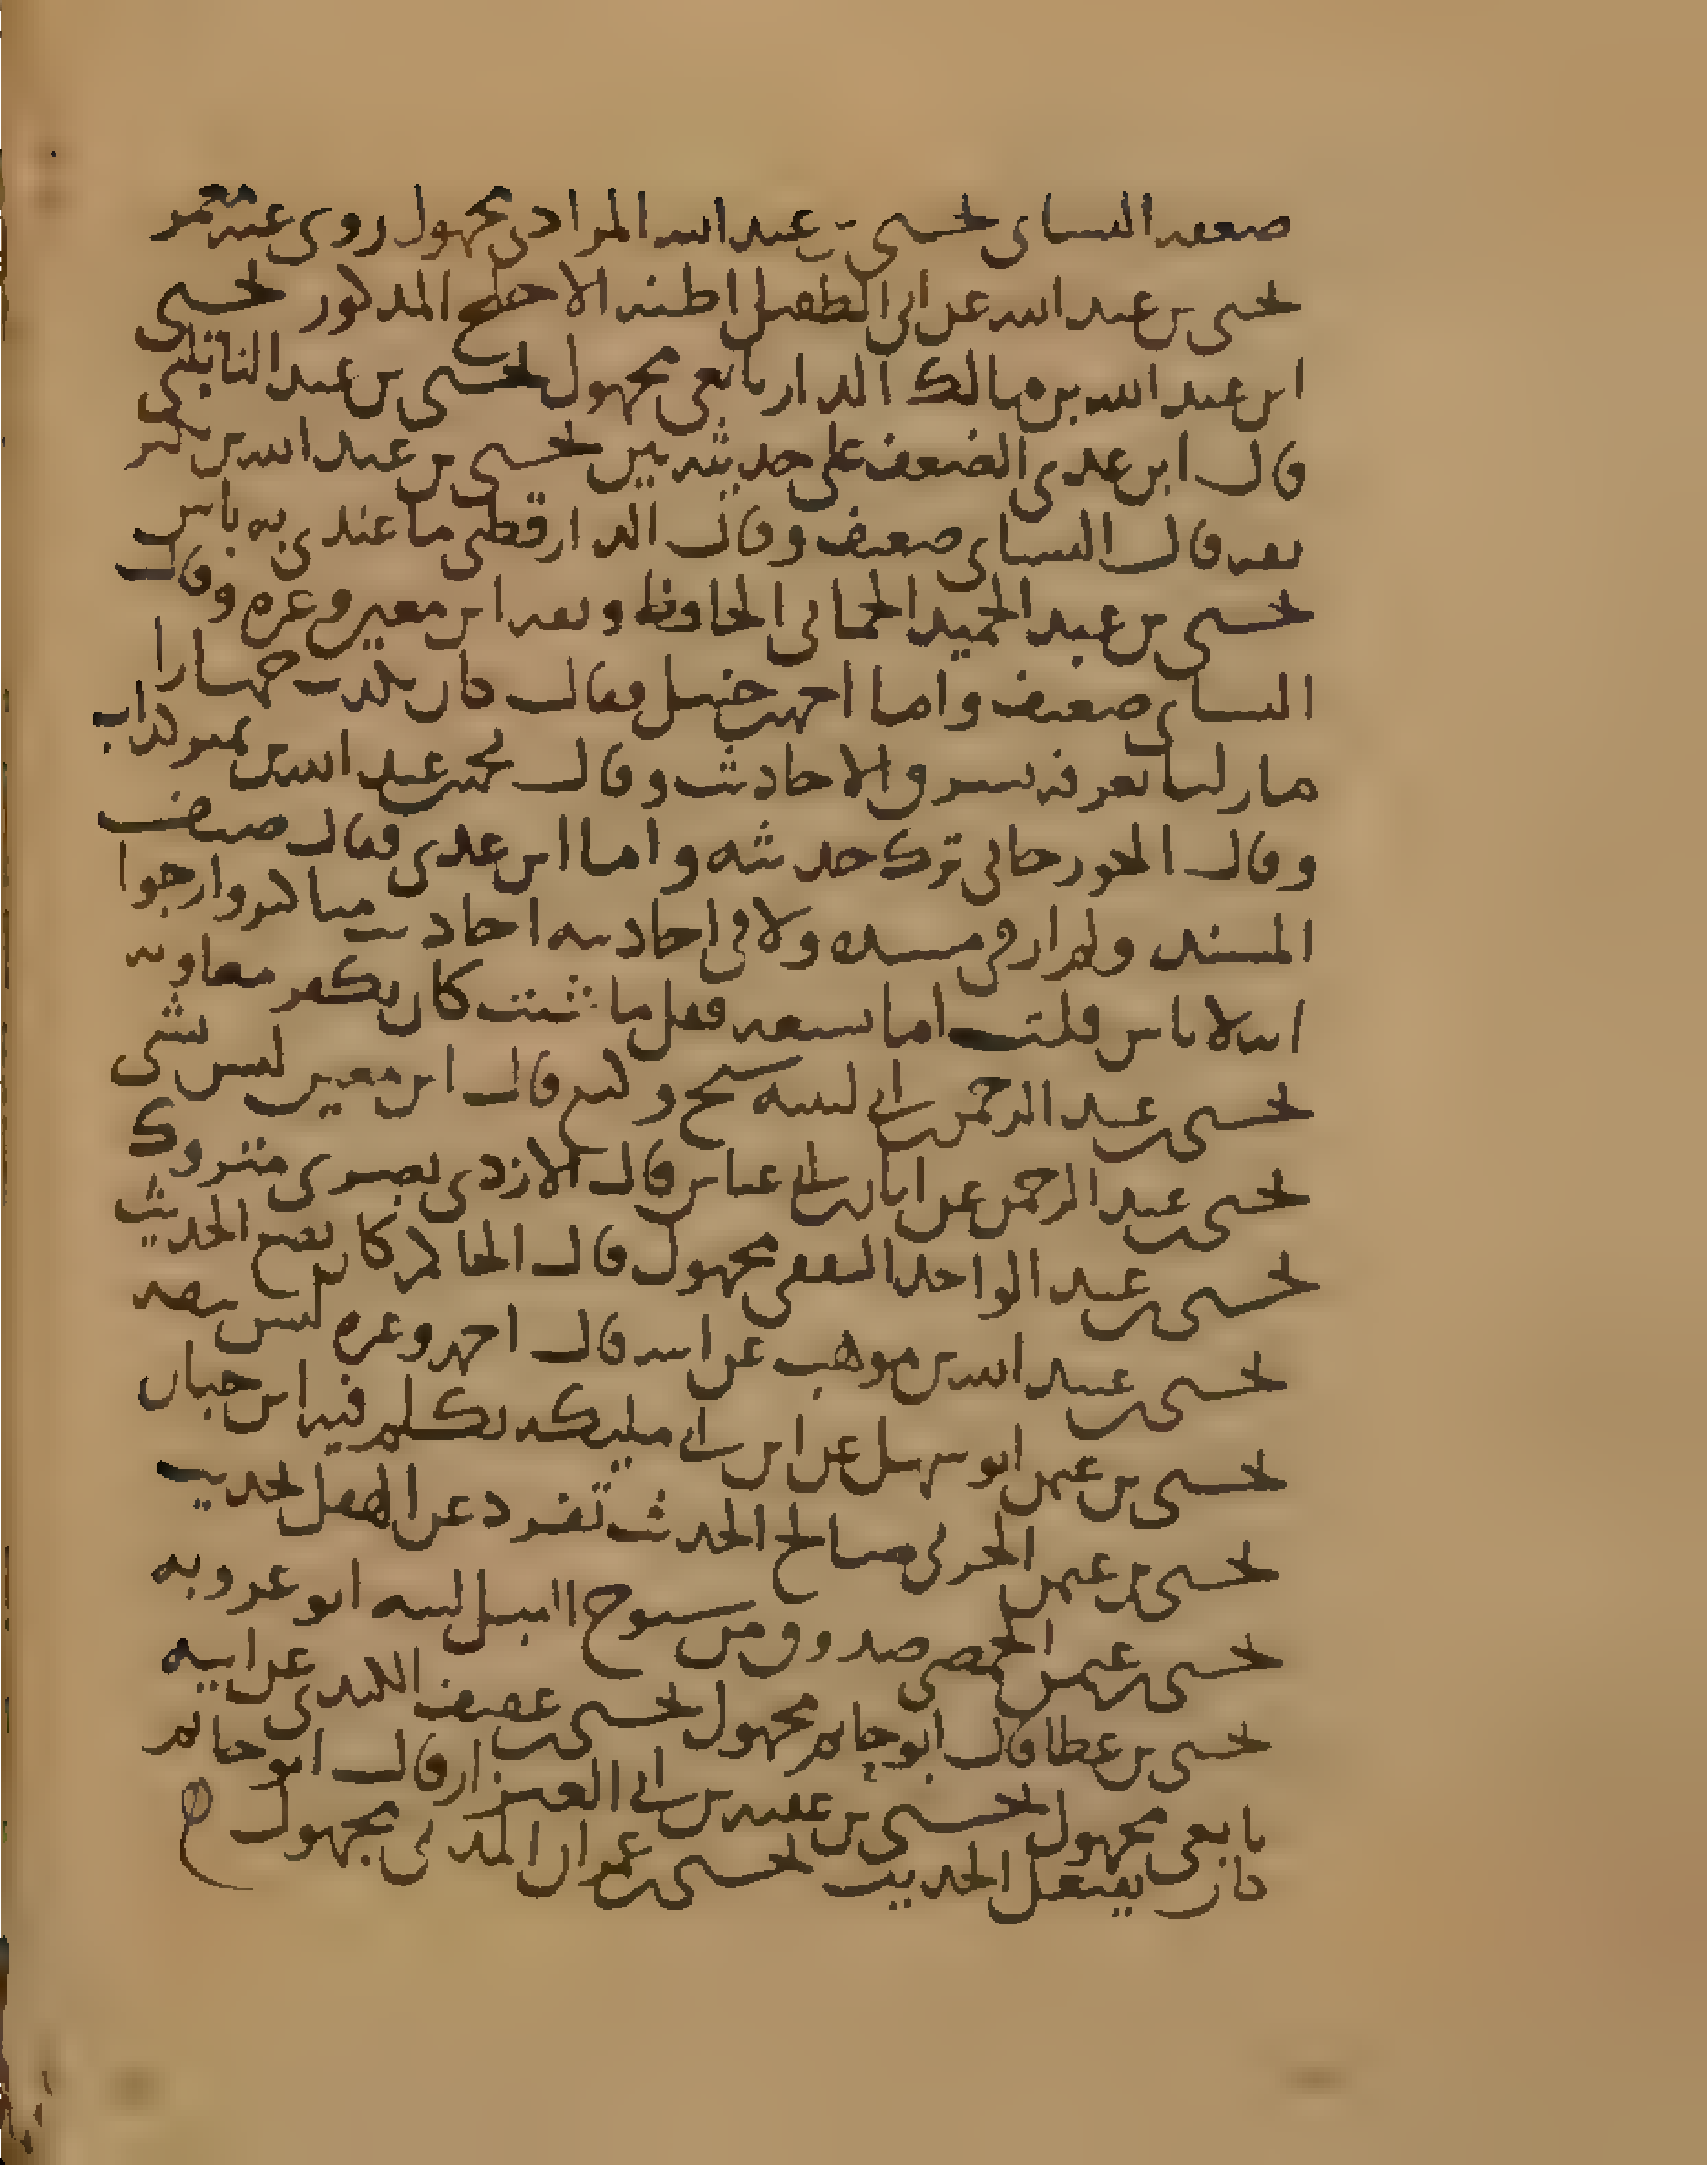 ضعفه النساى يحيى بن عبد الله المرادى مجهول روى عنه معمر
يحيى بن عبد الله عن ابى الطفيل اظنه الاجلح المذكور يحيى
ابن عبد الله بن مالك الدار تابعى مجهول يحيى بن عبد الله
قال ابن عدى الضعف على حديثه بين يحيى بن عبد الله بن بكير
ثقه قال النساى ضعيف وقال الدارقطنى ما عندى به باس
يحيى بن عبد الحميد الحمانى الحافظ وثقه ابن معين وغيره وقال
النساى ضعيف واما احمد بن حنبل فقال كان يكذب جهارا
ما زلنا نعرفه يسرق الاحاديث وقال محمد بن عبد الله بن نمير كذاب
وقال الجوزجانى ترك حديثه واما ابن عدى فقال صنف
المسند ولم ار فى مسنده ولا فى احاديثه احاديث مناكير وارجوا
انه لا باس قلت اما تشيعه فقل ما شئت كان يكفر معاويه
يحيى بن عبد الرحمن بن ابى لبيبه شيخ وكيع قال ابن معين ليس بشى
يحيى بن عبد الرحمن عن ابان بن ابى عباس قال الازدى بصرى متروك
يحيى بن عبد الواحد الثقفى مجهول قال الحاكم كان يضع الحديث
يحيى بن عبيد الله بن موهب عن ابيه قال احمد وغيره ليس بثقه
يحيى بن عثمن ابو سهل عن ابن ابى مليكه تكلم فيه ابن حبان
يحيى بن عثمن الحربى صالح الحديث تفرد عن الهقل بحديث
يحيى بن عثمن الحمصى صدوق من شيوخ النبل لينه ابو عروبه
يحيى بن عطا قال ابو حاتم مجهول يحيى بن عفيف الكندى عن ابيه
تابعى مجهول يحيى بن عقبه بن ابى العيزار قال ابو حاتم
كان يفتعل الحديث يحيى بن عمران المدنى مجهول